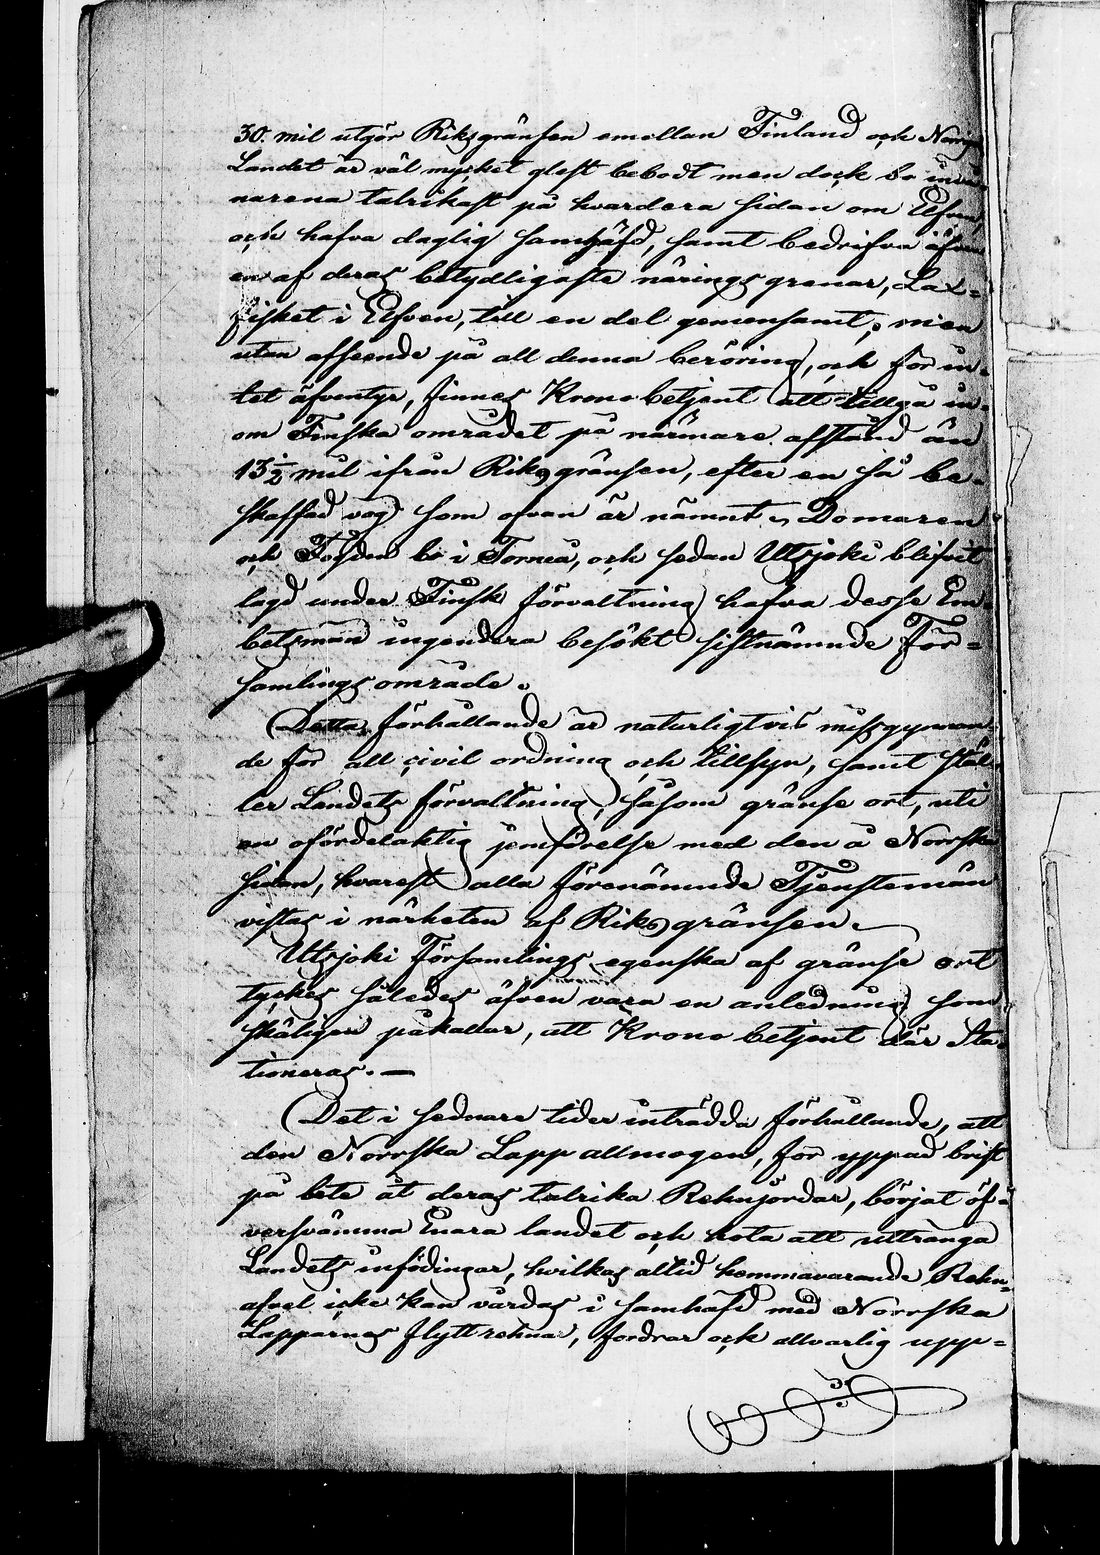 30. mil utgör Riksgränsen emellan Finland och Norige
Landet är väl mycket glest bebodt men dock bo inva-
narena talrikast på hvardera sidan om Elfven,
och hafva daglig samhäfd, samt bedrifva äfven
en af deras betydligaste näringsgrenar, Lax-
fisket i Elfven, till en del gemensamt; men
utan afseende på all denna beröring, och för in-
tet äfventyr, finnes Kronobetjent att tillgå in-
om Finska området på närmare afstånd än
13½ mil ifrån Riksgränsen, efter en så be-
skaffad väg som ofvan är nämnt. Domaren
och Fogden bo i Torneå, och sedan Utsjoki blifvit
lagd under Finsk förvaltning hafva desse Em-
betsmän ingendera besökt sistnämnde För-
samlings område.
Detta förhållande är naturligtvis missgynnan-
de för all civil ordning och tillsyn, samt stäl-
ler Landets förvaltning, såsom gränse ort, uti
en ofördelaktig jemförelse med den å Norrska
sidan, hvarest alla förenämnde Tjenstemän
vistas i närheten af Riksgränsen.
Utsjoki Församlings egenskap af gränse ort
tyckes således äfven vara en anledning som
skäligen påkallar, att Kronobetjent där Sta-
tioneras. —
Det i sednare tider inträdda förhållande, att
den Norrska Lappallmogen, för yppad brist
på bete åt deras talrika Rehnhjordar, börjat öf-
versvämma Enara landet och hota att uttränga
Landets infödingar, hvilkas altid hemmavarande Rehn-
afvel icke kan vårdas i samhäfd med Norrska
Lapparnas flyttrehnar, fordrar och allvarlig upp-